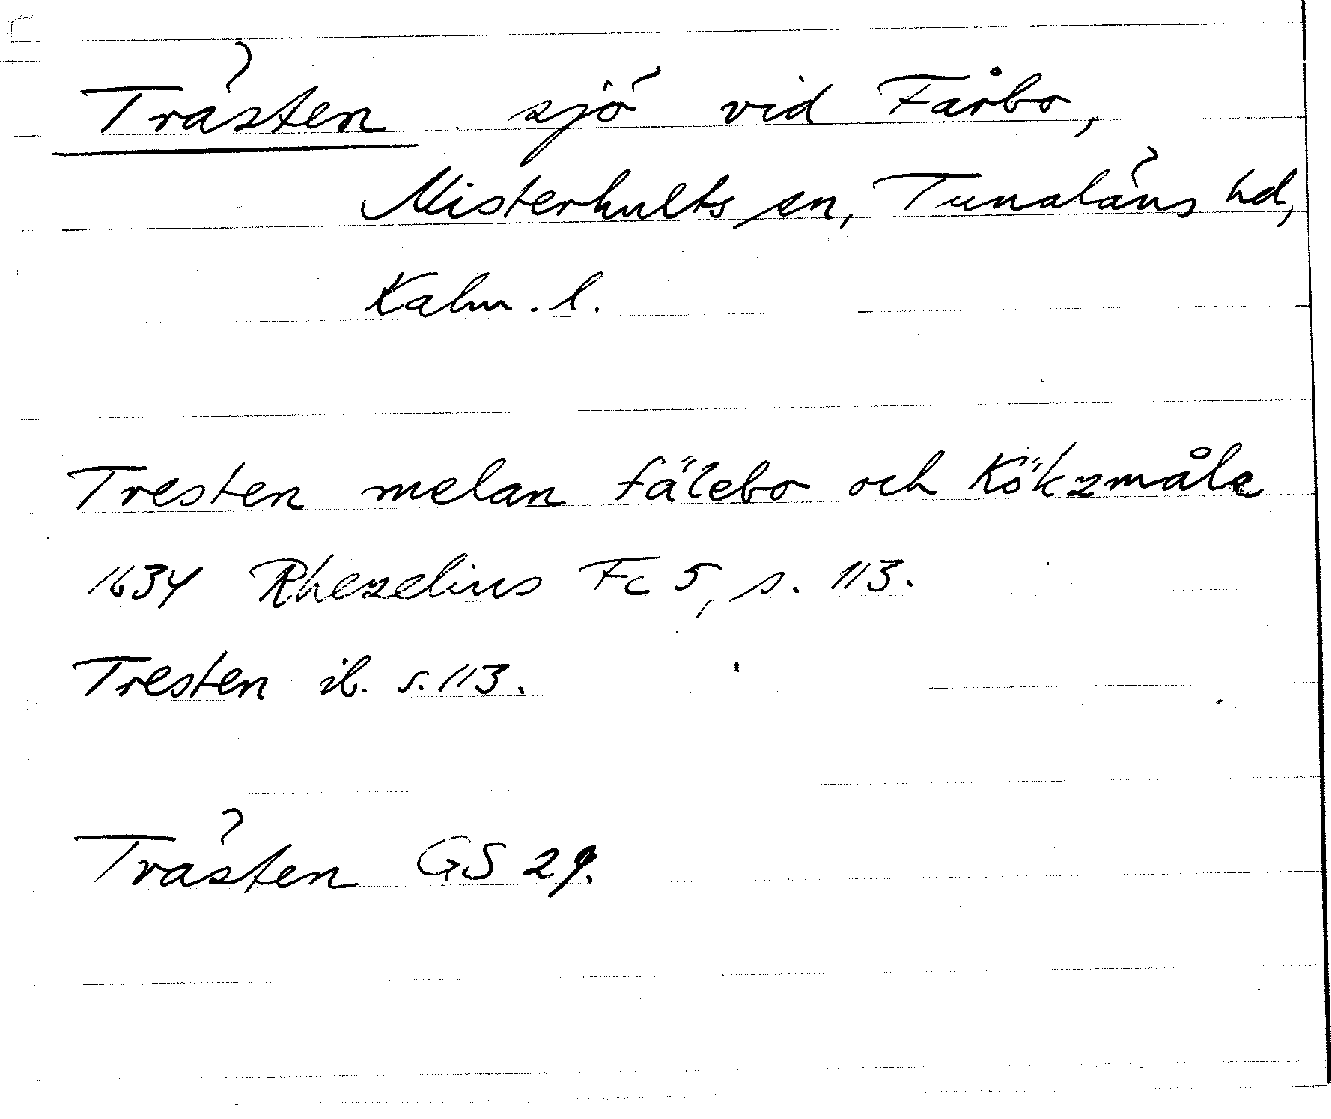 Trästen sjö vid Fårbo,
Misterhults sn, Tunaläns hd,
Kalm. l.
Tresten melan fälebo och Kökzmåla
1634 Rhezelius Fc 5, s. 113.
Tresten ib. s. 113.
Trästen GS 29.